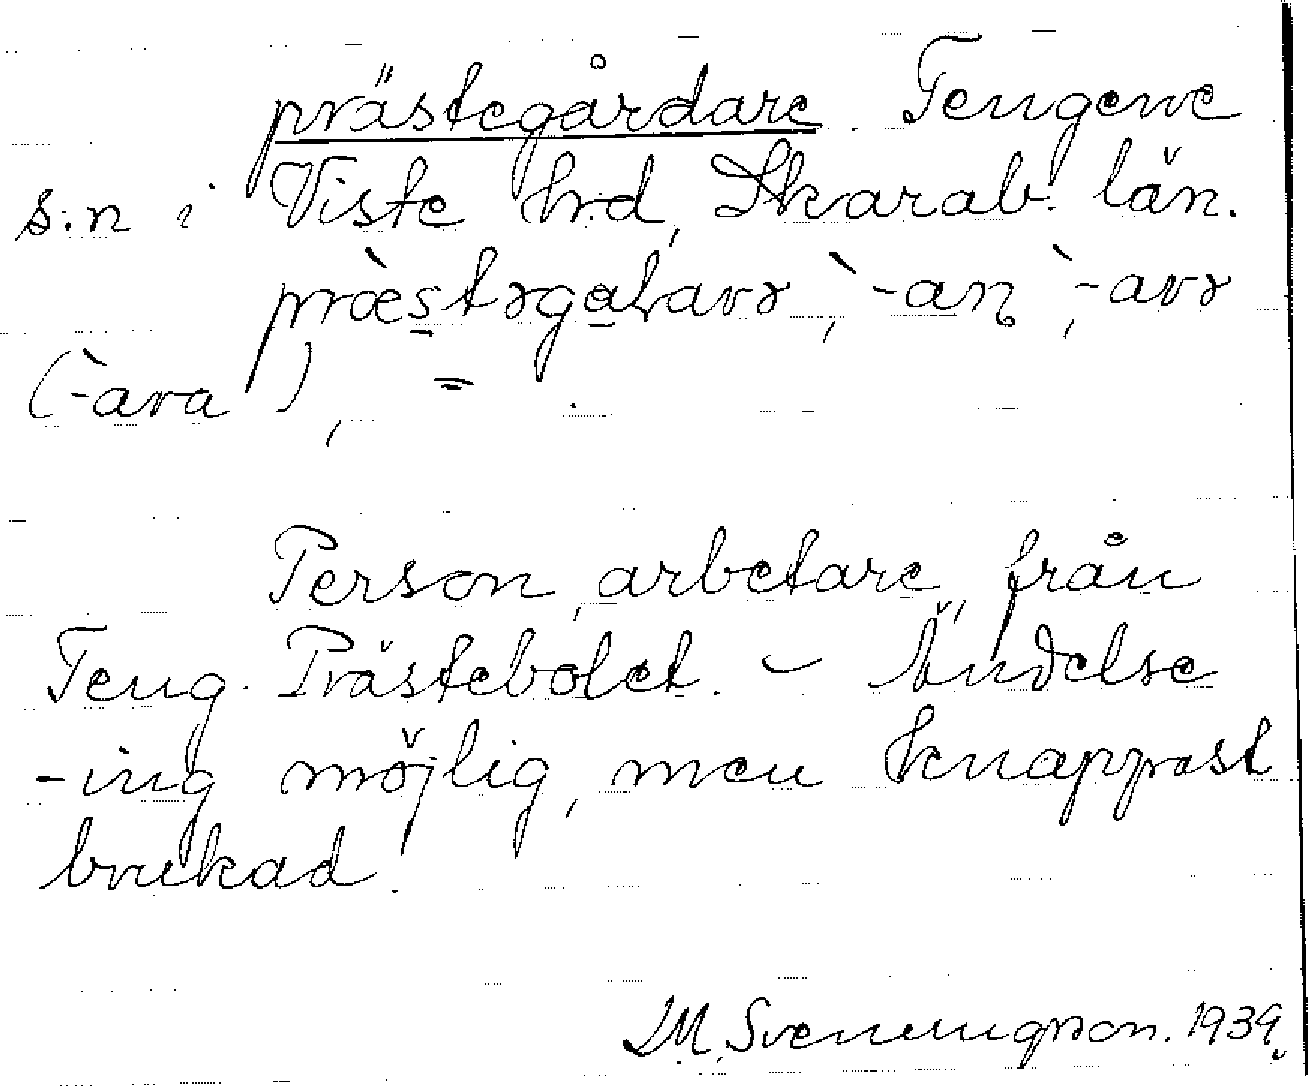 prästegårdare. Tengene
s:n i Viste hrd, Skarab. län.
præ̀stəgaɫavə, -̀an, -̀avə
(-̀ara), =.
Person, arbetare, från
Teng. Prästebolet. – Ändelse
-ing möjlig, men knappast
brukad.
D.M. Svenningson. 1939.